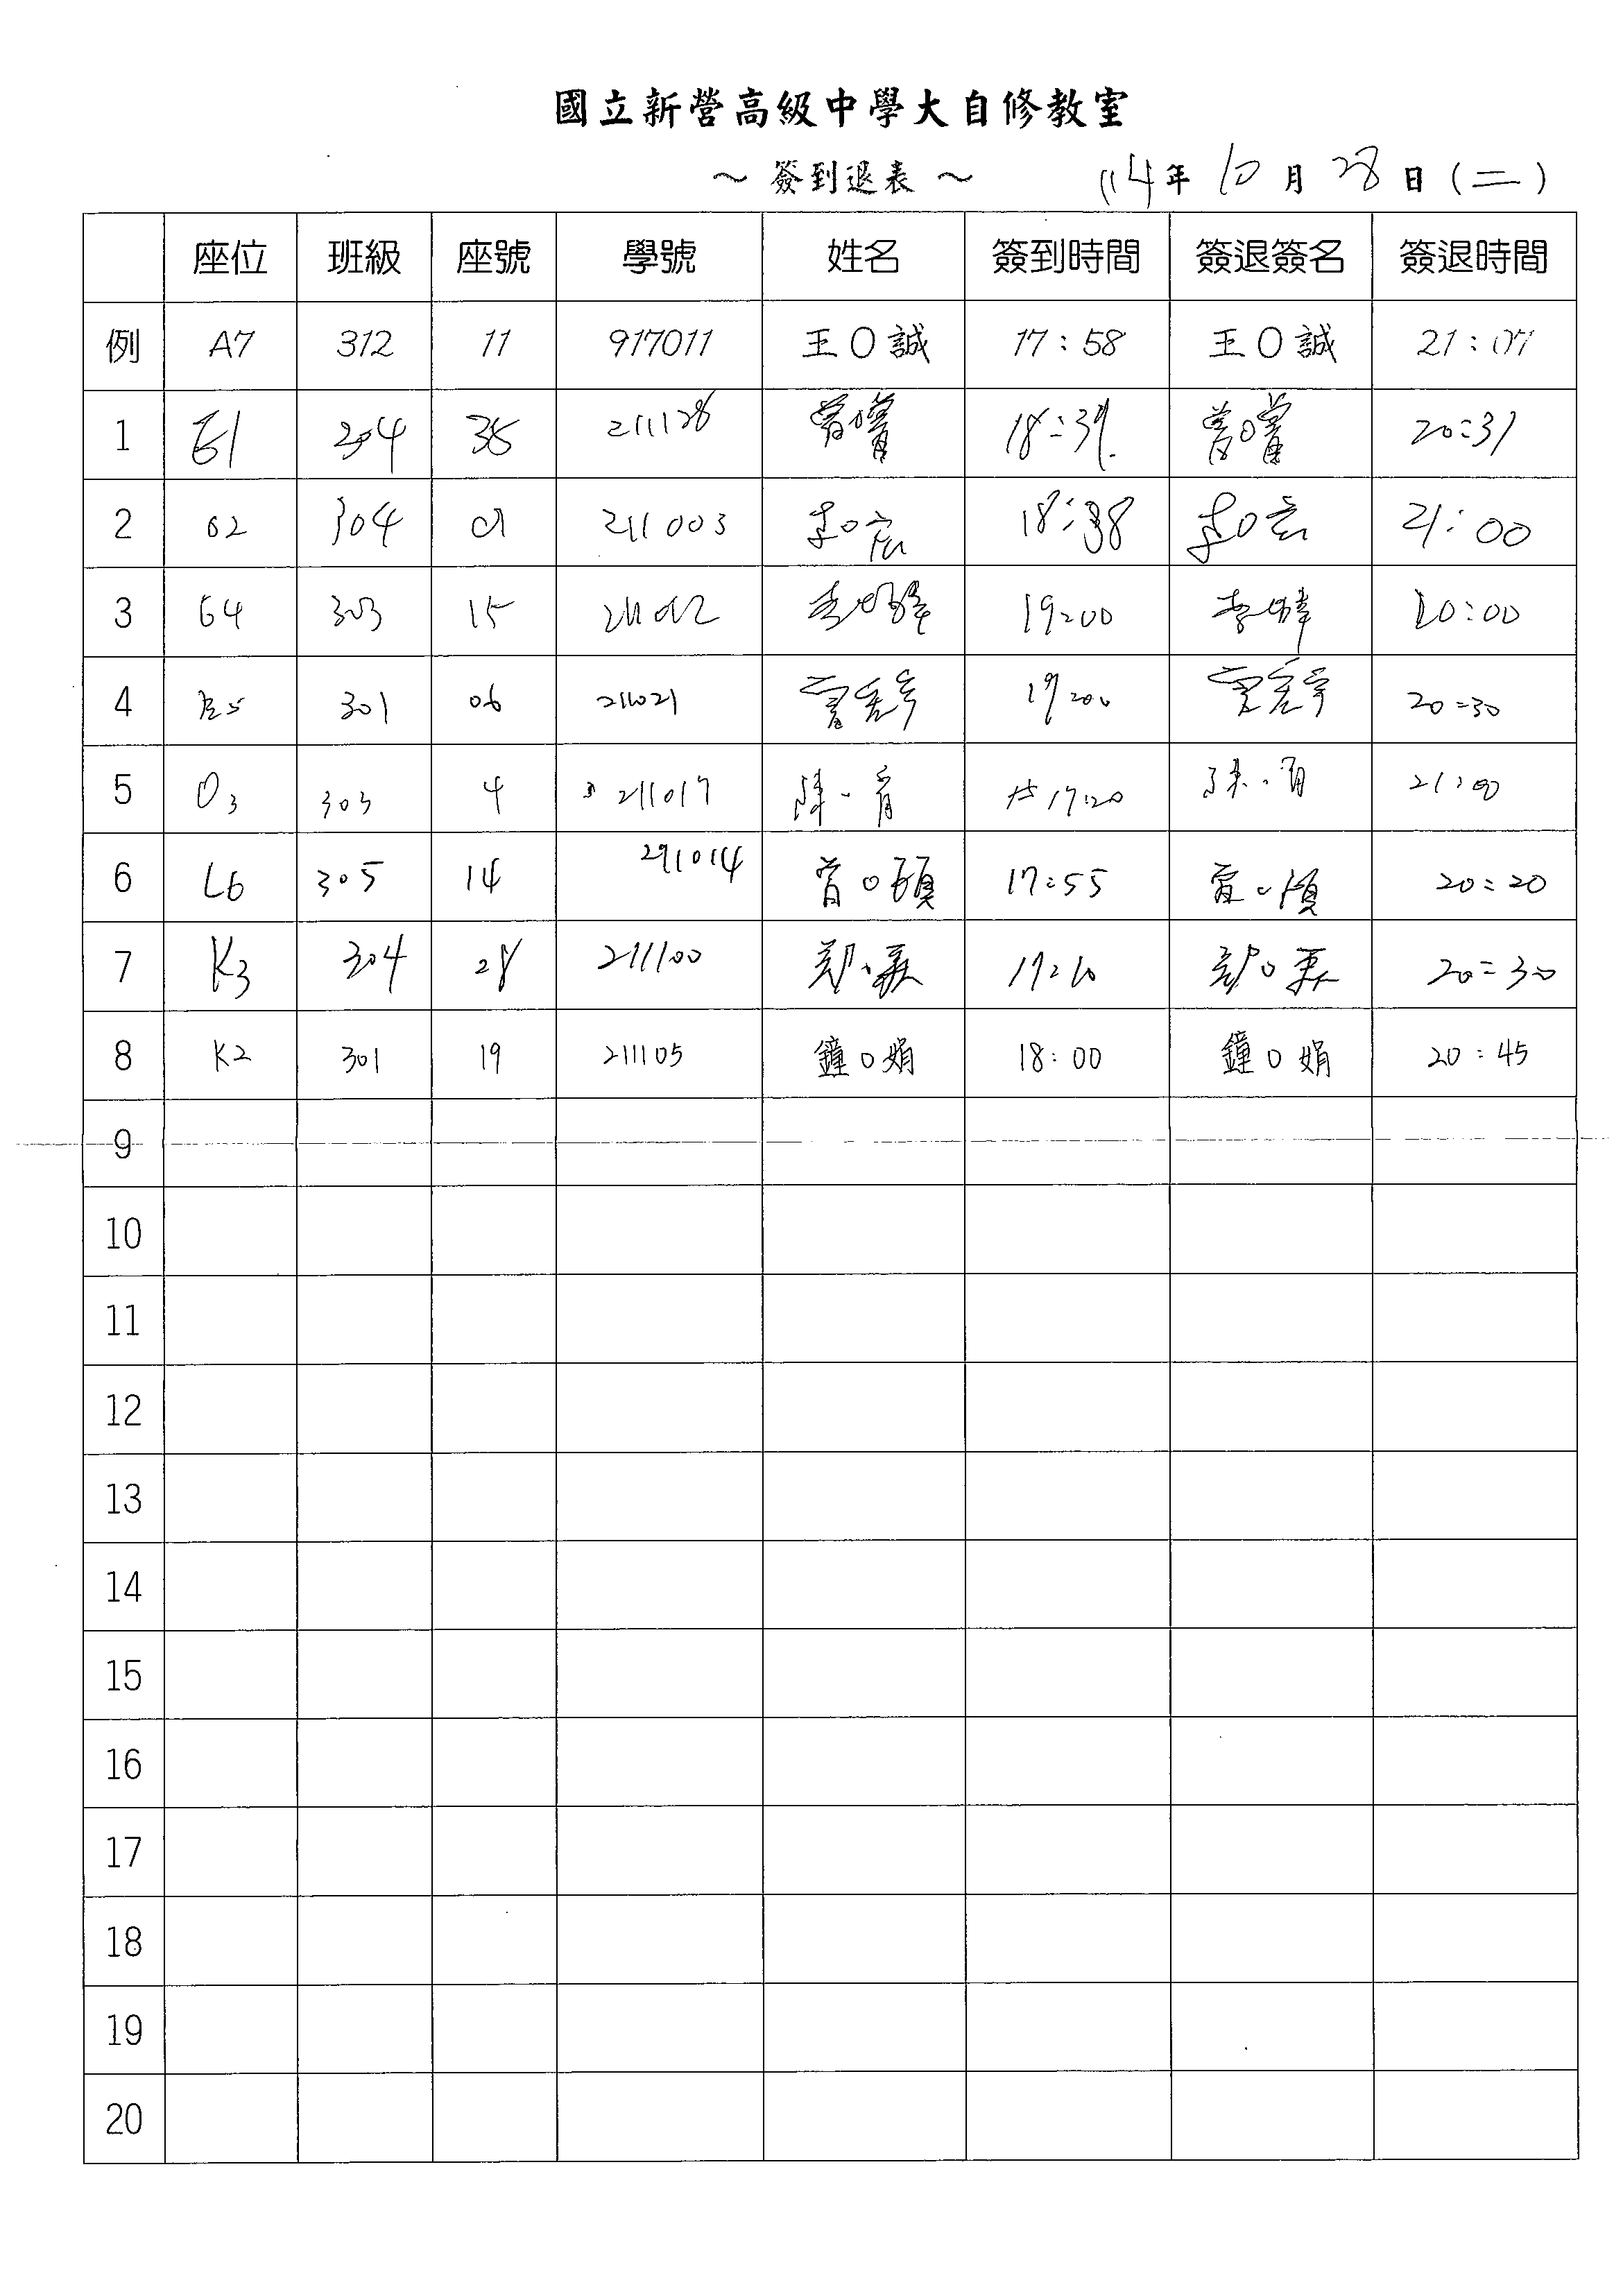 國立新營高級中學大自修教室
～ 簽到退表 ～ 114年 10月 28日(二)
座位 班級 座號 學號 姓名 簽到時間 簽退簽名 簽退時間
例 A7 312 11 917011 王○誠 17:58 王○誠 21:07
1 E1 204 35 211128 18:39 20:31
2 304 211003 李○宏 18:38 李○宏 21:00
3 G4 303 15 19:00 20:00
4 301 06 211021 19:00 20:30
5 O3 303 4 211017 陳○育 17:20 陳○育 21:00
6 L6 305 14 211014 曾○碩 17:55 曾○碩 20:20
7 K3 304 28 211100 鄭○ 19:10 鄭○ 20:30
8 K2 301 19 211105 鐘○娟 18:00 鐘○娟 20:45
9
10
11
12
13
14
15
16
17
18
19
20